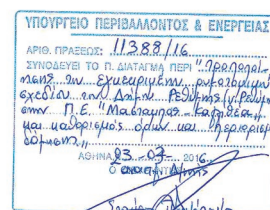 ΥΠΟΥΡΓΕΙΟ ΠΕΡΙΒΑΛΛΟΝΤΟΣ & ΕΝΕΡΓΕΙΑΣ
ΑΡΙΘ. ΠΡΑΞΕΩΣ: 11388/16
ΣΥΝΟΔΕΥΕΙ ΤΟ Π. ΔΙΑΤΑΓΜΑ ΠΕΡΙ "Τροποποί-
ησης του εγκεκριμένου ρυμοτομικού
σχεδίου του Δήμου Ρεθύμνης (ν. Ρεθύμνου)
στην Π.Ε. "Μασταμπάς - Καλλιθέα"
και καθορισμός όρων και περιορισμών
δόμησης"
ΑΘΗΝΑ 23-03- 2016
Ο